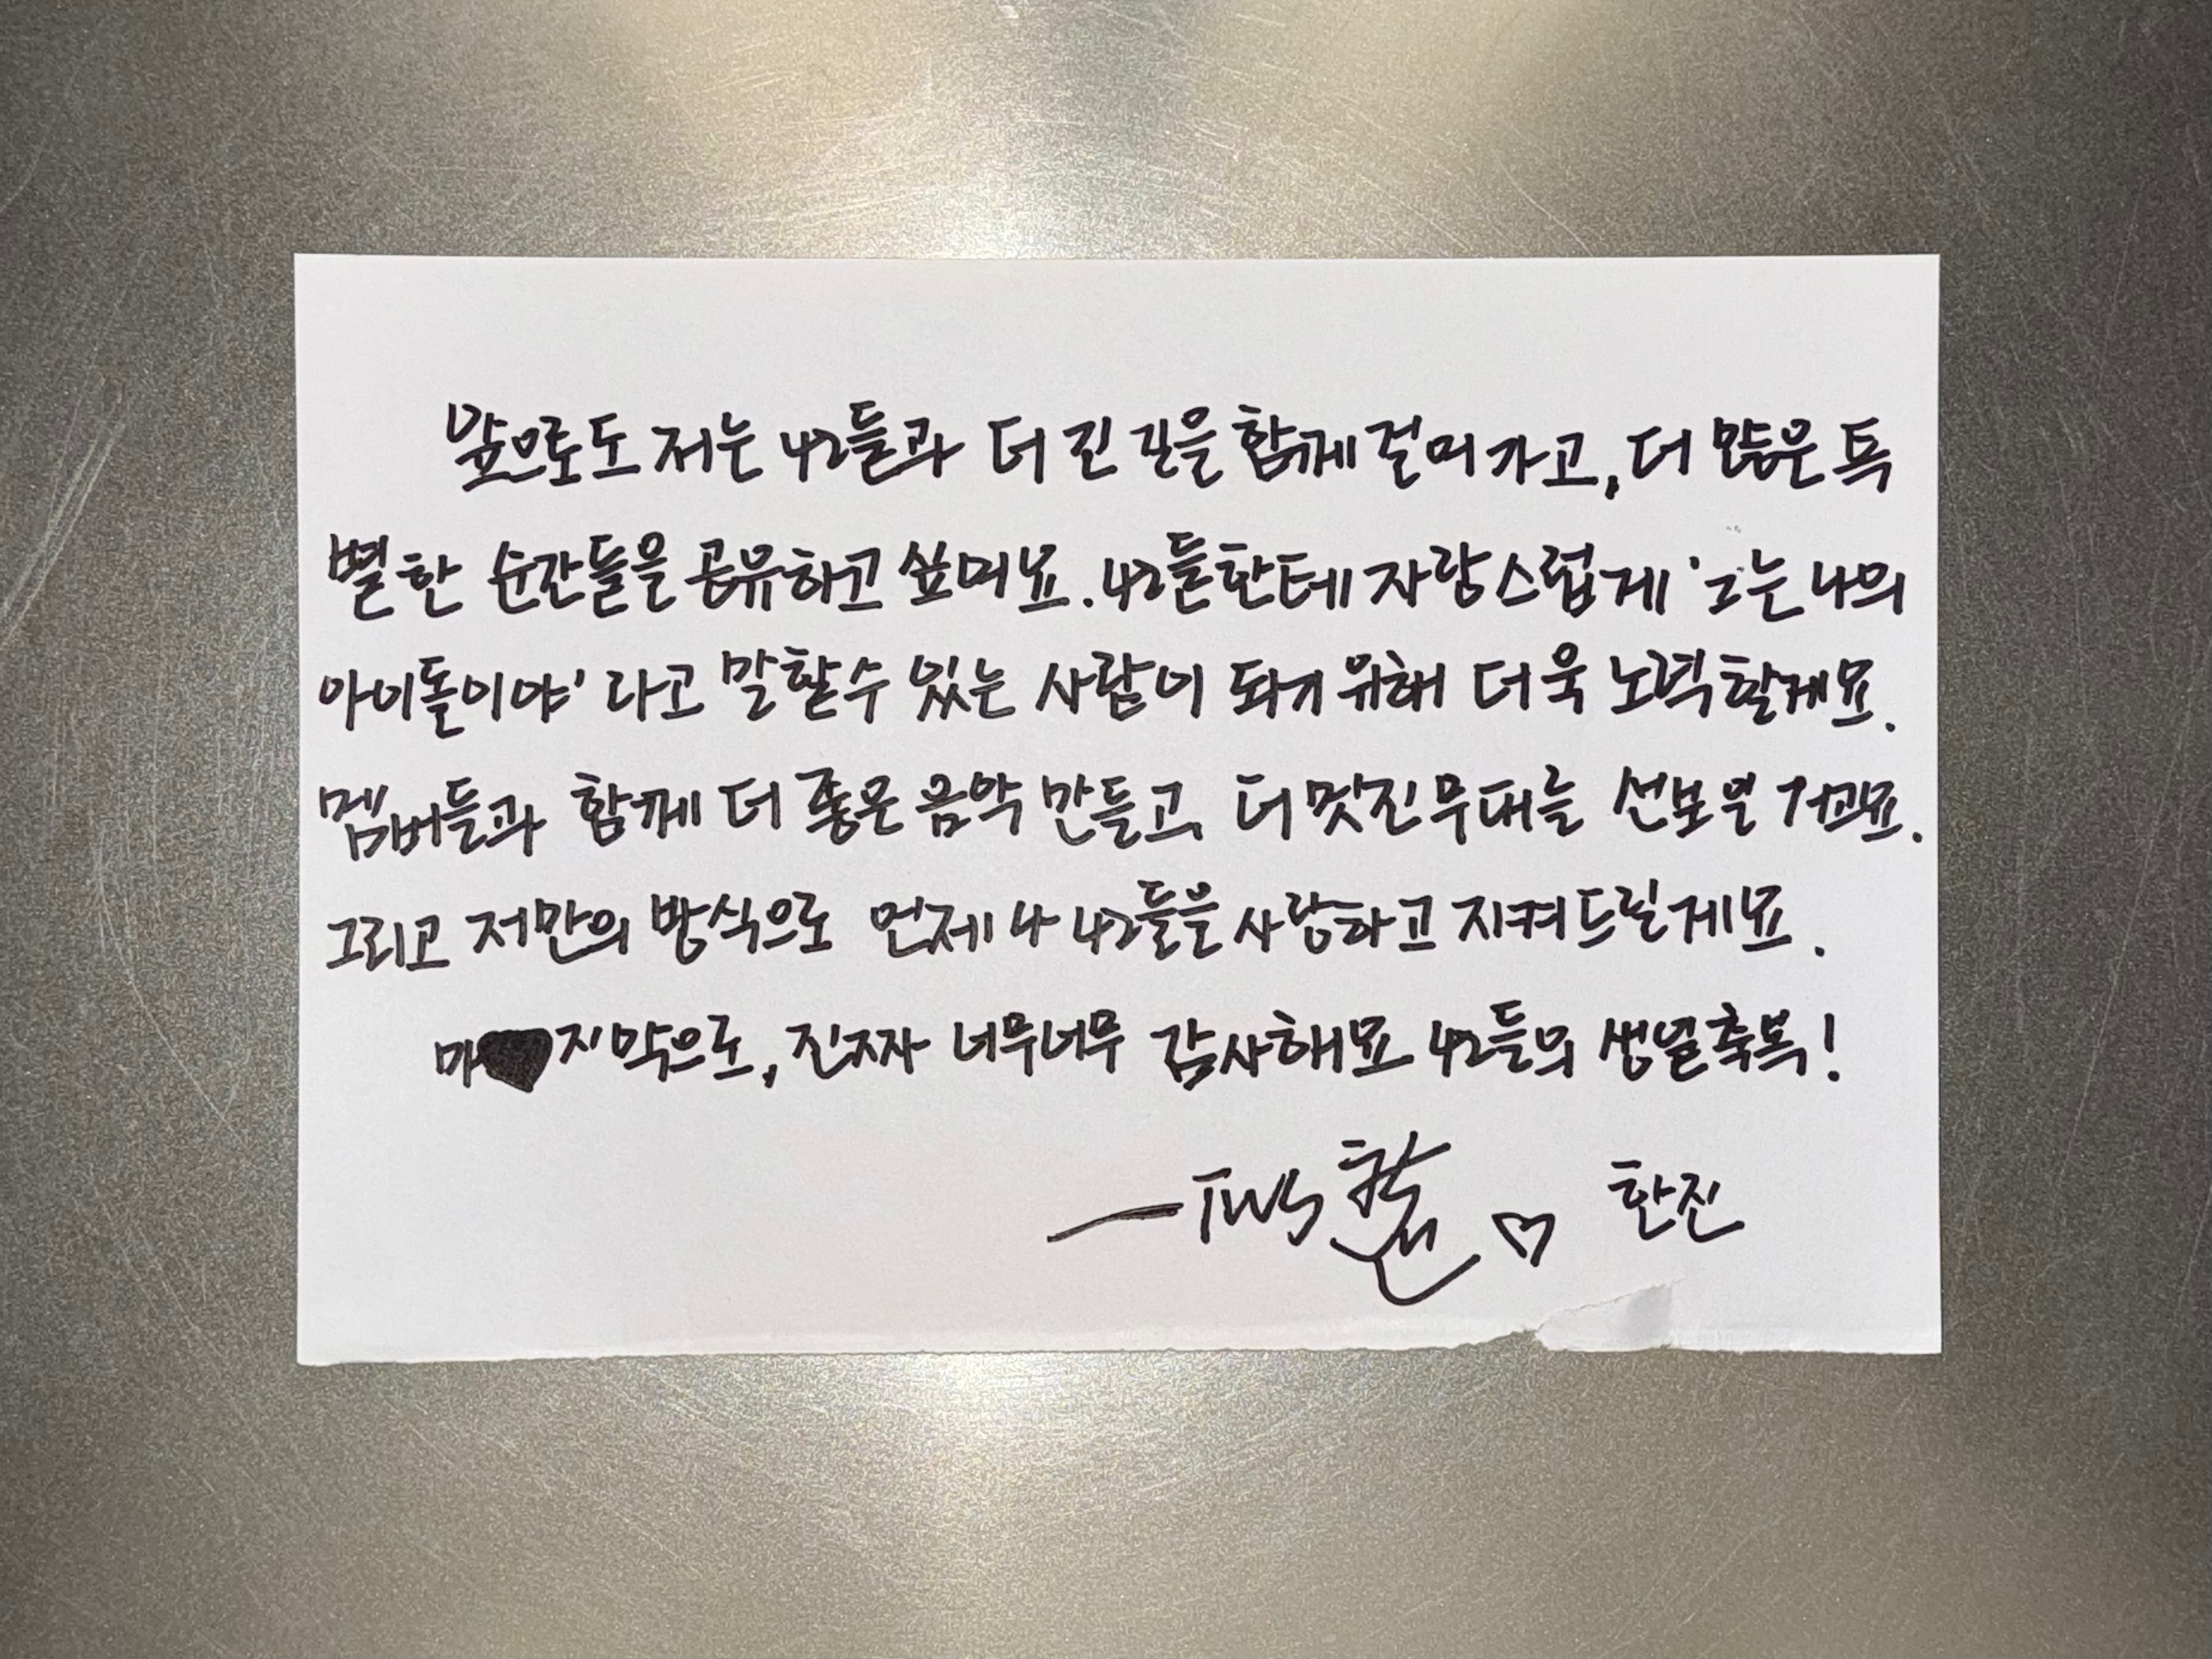 앞으로도 저는 42들과 더 긴 길을 함께 걸어가고, 더 많은 특
별한 순간들을 공유하고 싶어요. 42들한테 자랑스럽게 '그는 나의
아이돌이야' 라고 말할 수 있는 사람이 되기 위해 더욱 노력할게요.
멤버들과 함께 더 좋은 음악 만들고, 더 멋진 무대를 선보일 거예요.
그리고 저만의 방식으로 언제나 42들을 사랑하고 지켜드릴게요.
마지막으로, 진짜 너무너무 감사해요 42들의 생일축복!
— TWS ♡ 한진